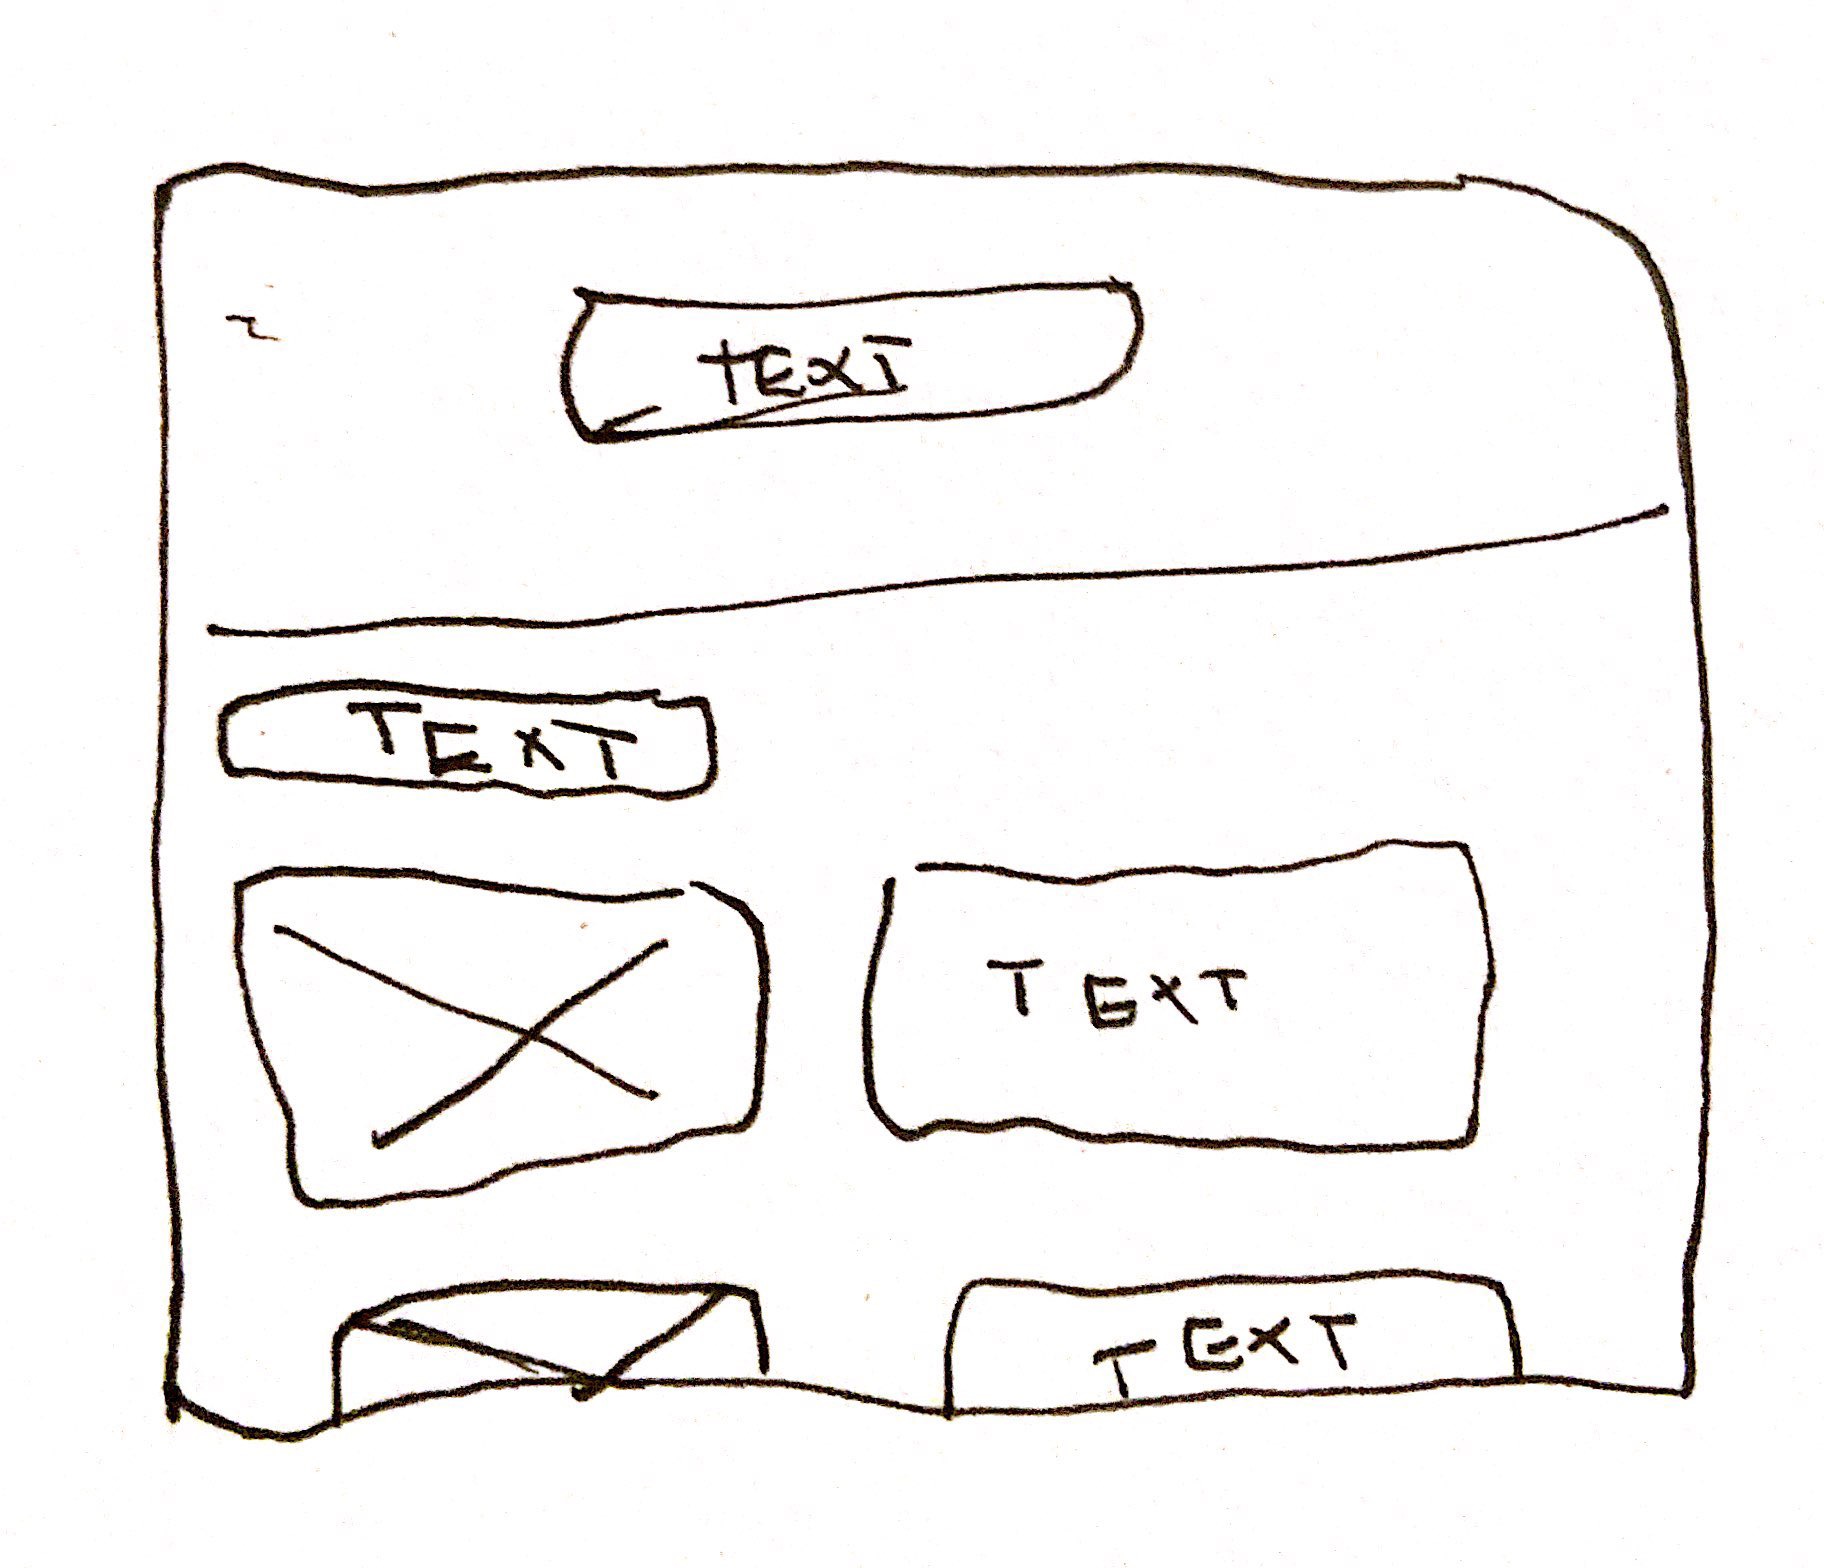 TEXT
TEXT
TEXT
TEXT